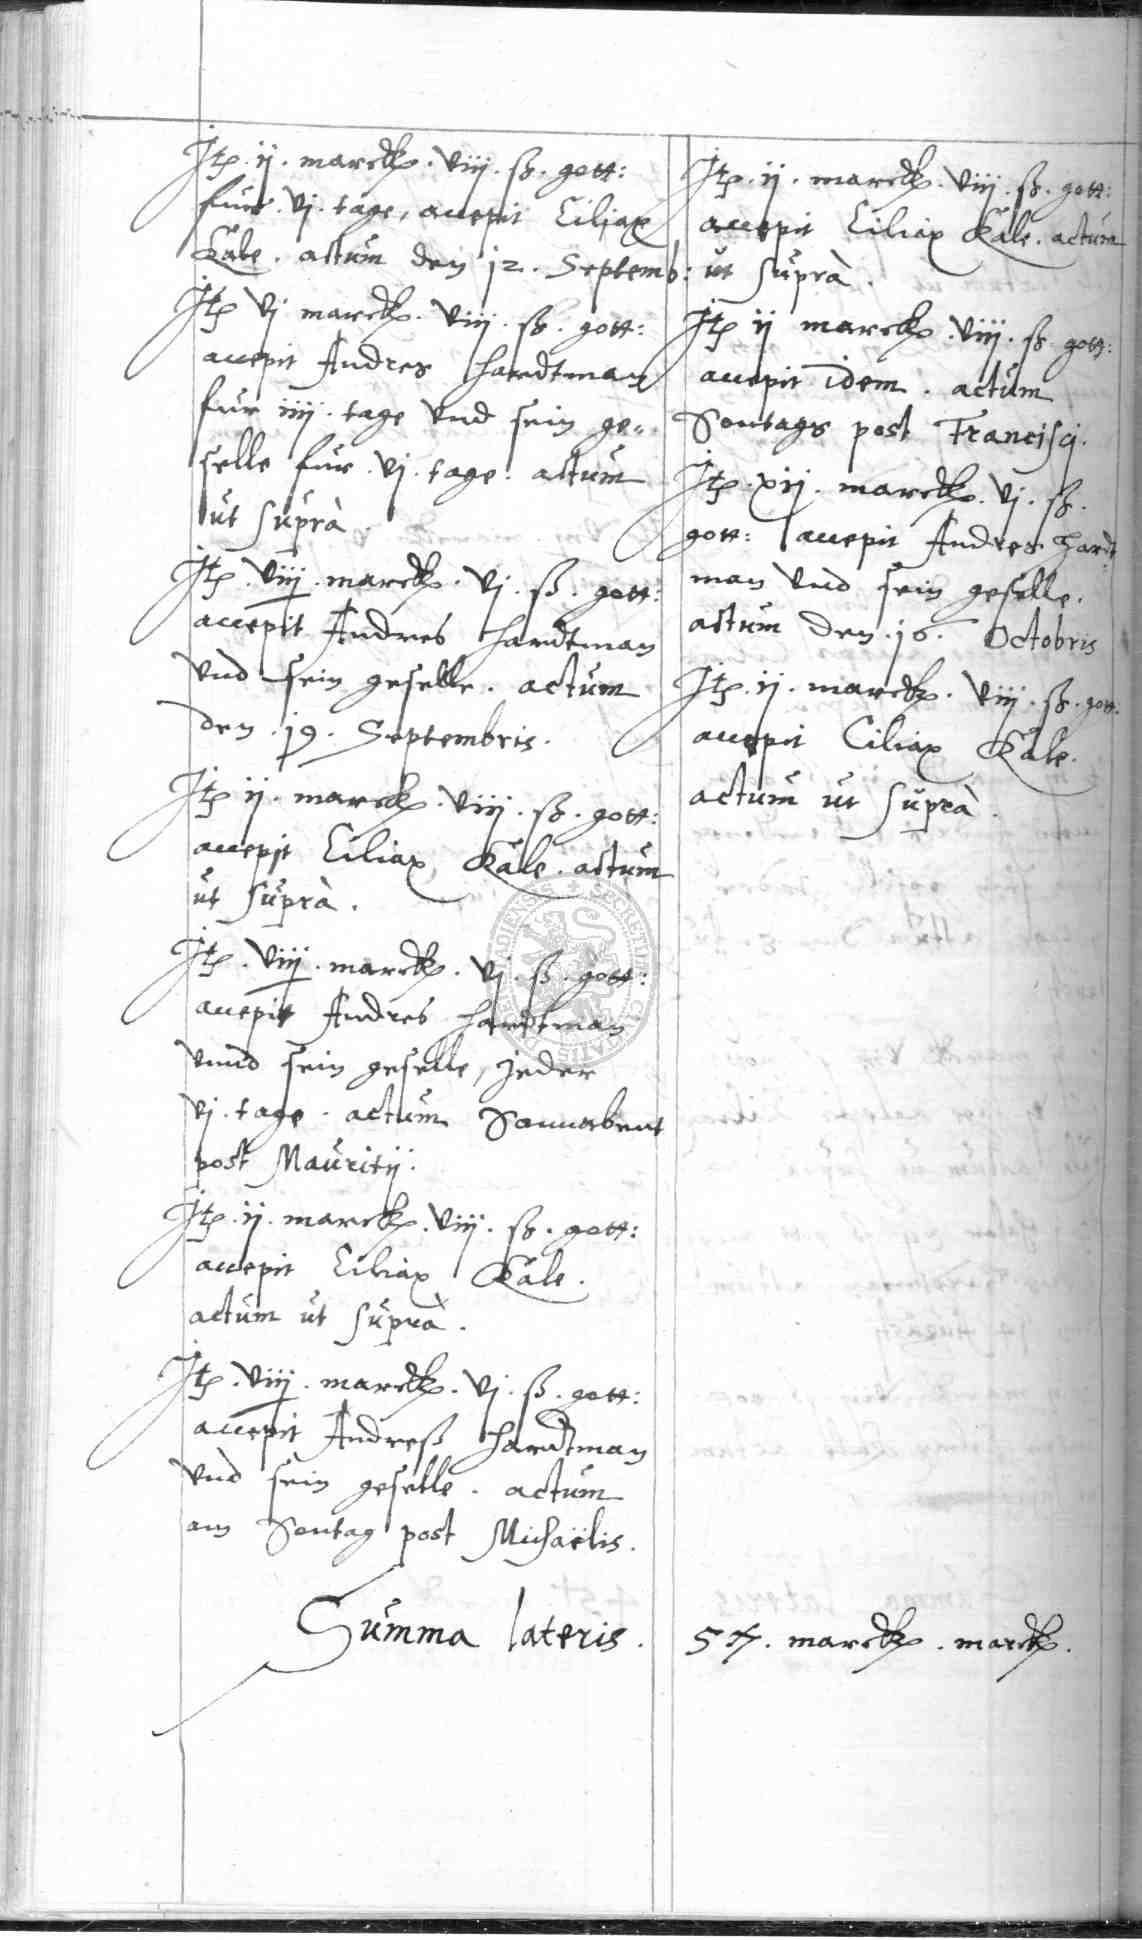 Jtem .ij. marck . viij . ß . gott:
fuer . vj . tage, accepit Ciliax
Kale . actum den 12 . Septemb:
Jtem vj marck . viij . ß . gott:
accepit Andres Hardtman
fur iiij . tage vnd sein ge=
selle fur . vj . tage . actum
ut suprà .
Jtem . viij . marck . vj . ß . gott:
accepit Andres Hardtman
vnd sein geselle . actum
den . 19 . Septembris .
Jtem ij . marck . viij . ß . gott:
accepit Ciliax Kale . actum
ut suprà .
Jtem . viij . marck . vj . ß . gott:
accepit Andres Hardtman
vnnd sein geselle, jeder
vj . tage . actum Sonnabent
post Mauritij .
Jtem . ij . marck . viij . ß . gott:
accepit Ciliax Kale .
actum ut suprà .
Jtem . viij . marck . vj . ß . gott:
accepit Andreß Hardtman
vnd sein geselle . actum
am Sontag post Michaëlis .
Jtem . ij . marck . viij . ß . gott:
accepit Ciliax Kale . actum
ut suprà .
Jtem ij marck . viij . ß gott:
accepit idem . actum
Sontags post Francisci .
Jtem . xij . marck . vj . ß .
gott: accepit Andres Hardt=
man vnd sein geselle .
actum den . 16 . Octobris
Jtem . ij . marck . viij . ß . gott:
accepit Ciliax Kale .
actum ut suprà .
Summa lateris . 57 . marck . marck .